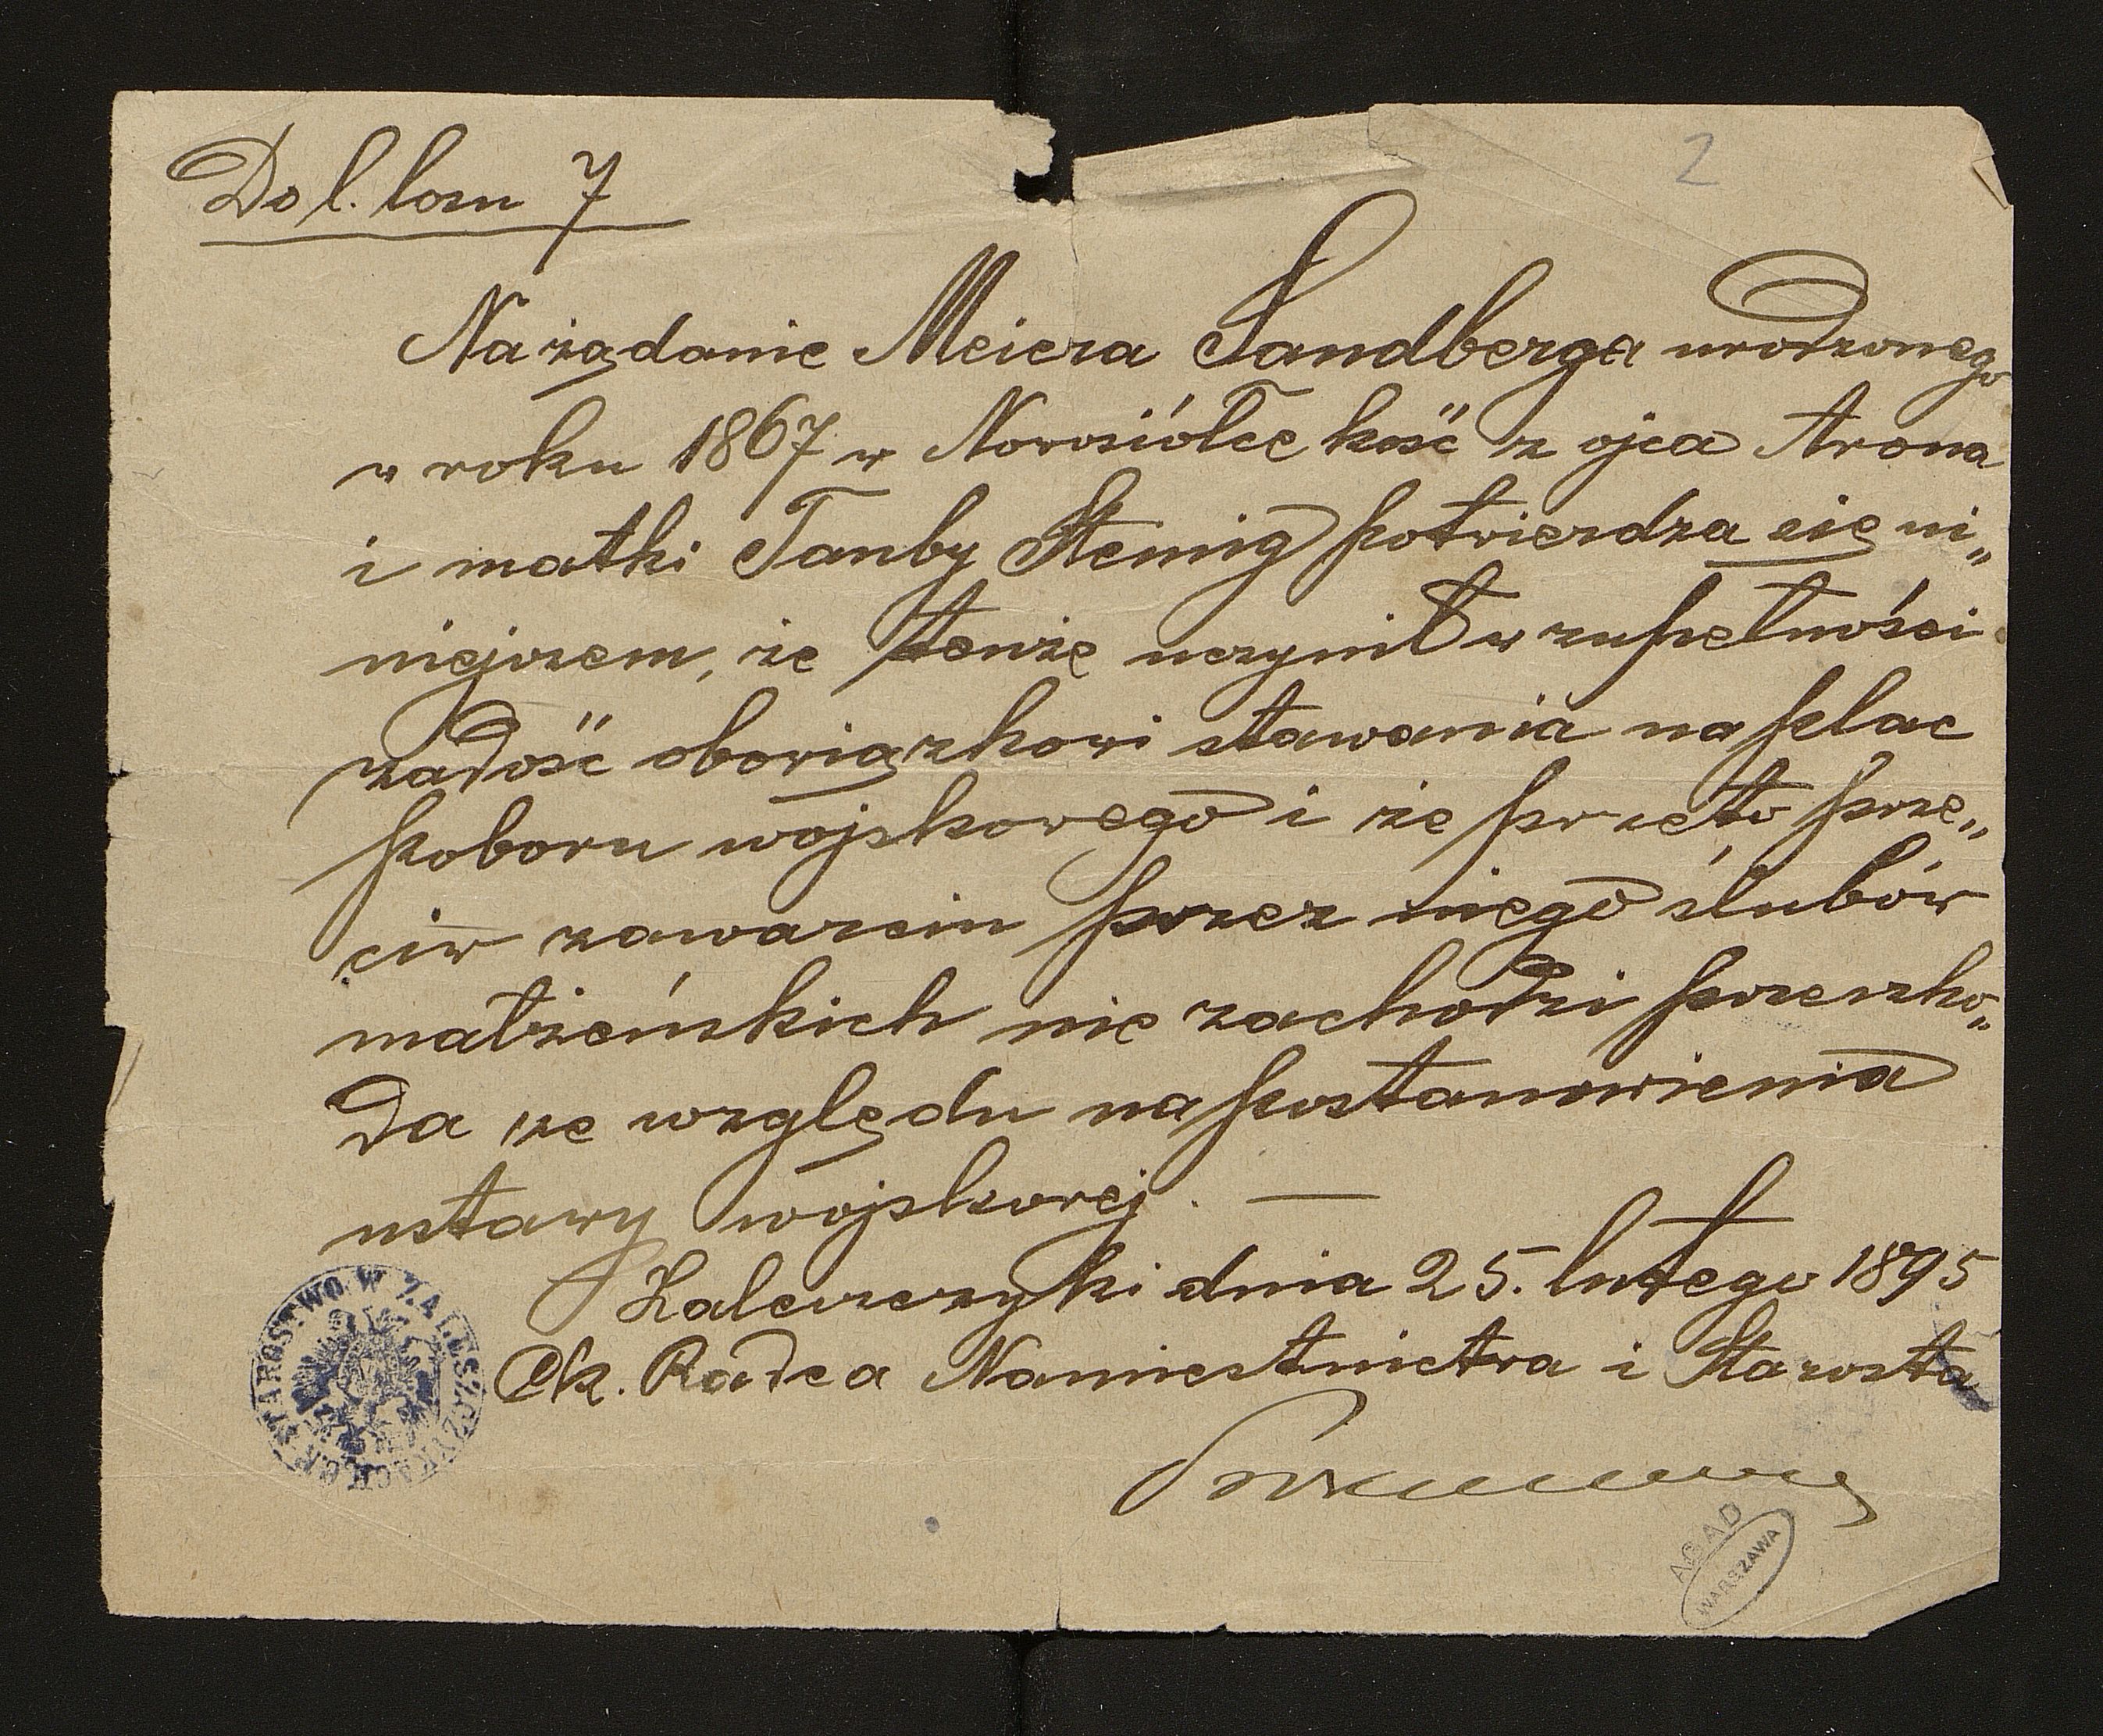 Do l. losu 7
2
Na żądanie Meiera Sandberga urodzonego
w roku 1867 w Nowosiółce kość z ojca Arona
i matki Tauby Stemig potwierdza się ni„
niejszem, że tenże uczynił w zupełności
zadość obowiązkowi stawania na plac
poboru wojskowego i że przeto prze„
ciw zawarciu przez niego ślubów
małżeńskich nie zachodzi przeszko„
da ze względu na postanowienia
ustawy wojskowej. —
Zaleszczyki dnia 25. lutego 1895
Ck. Radca Namiestnictwa i Starosta
C.K. STAROSTWO W ZALESZCZYKACH
AGAD
WARSZAWA